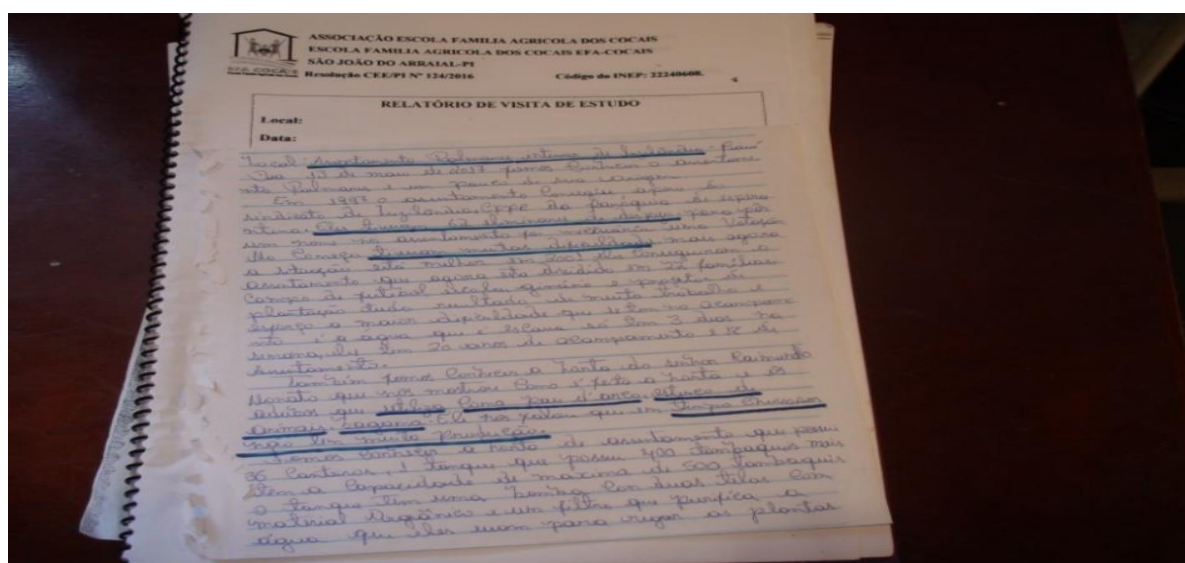 ASSOCIAÇÃO ESCOLA FAMILIA AGRICOLA DOS COCAIS
ESCOLA FAMILIA AGRICOLA DOS COCAIS EFA-COCAIS
SÃO JOÃO DO ARRAIAL-PI
Resolução CEE/PI Nº 124/2016 Código do INEP: 22240608.
RELATÓRIO DE VISITA DE ESTUDO
Local:
Data:
Local: Assentamento Palmares interior de Luzilândia - Piauí
Dia 13 de maio de 2017 fomos conhecer o assentame
nto Palmares e um pouco de sua origem
Em 1997 o assentamento conseguiu apoio do
sindicato de Luzilândia da paróquia de
para pôr
um nome no assentamento foi uma votação
No começo muitas dificuldade mais agora
a situação está milhor em 2001 ele conseguiram o
assentamento que agora esta dividido em 22 famílias
campo de futebol escolas e projetos de
plantação tudo resultado de muito trabalho e
esforço a maior dificuldade que se tem no acampame
nto é a água que é escassa só tem 3 dias na
semana, eles tem 20 anos de acampamento e de
assentamento.
Também fomos conhecer a horta do senhor Raimundo
Nonato que nos mostrou como é feito a horta e os
adubos que utiliza como pau d'arco, esterco de
animais, bagana. Ele nos falou que em tempos chuvosos
não tem muita produção.
Fomos conhecer a horta do assentamento que possui
36 canteiros, 1 tanque que possui 400 tambaquis mais
tem a capacidade de maxima de 500 tambaquis
o tanque tem uma bomba con duas telas com
material orgânico e um filtro que purifica a
água que eles usam para regar as plantas